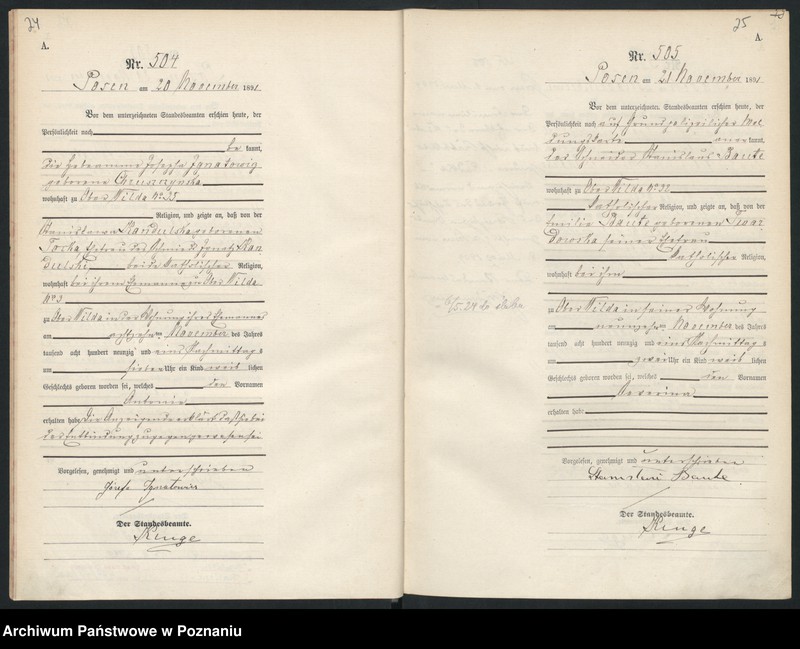 24
A.
Nr. 504
Posen am 20 November 1891
Vor dem unterzeichneten Standesbeamten erschien heute, der
Persönlichkeit nach
be kannt,
die Hebamme Josepha Ignatowicz
geborene
wohnhaft zu Ober Wilda No 35
Religion, und zeigte an, daß von der
Stanislawa Kandulska geborenen
Ehefrau des Schmieds Ignatz Kan
dulski beide katholischer Religion,
wohnhaft bei ihrem Ehemanne zu Ober Wilda
No 3
zu Ober Wilda in der Wohnung ihres Ehemannes
am achtzehnten November des Jahres
tausend acht hundert neunzig und eins Nachmittags
um sieben Uhr ein Kind weib lichen
Geschlechts geboren worden sei, welches den Vornamen
Antonie
erhalten habe. Die Anzeigende erklärt daß sie bei
der Entbindung zugegen gewesen sei
Vorgelesen, genehmigt und unterschrieben
Józefa Ignatowicz
Der Standesbeamte.
25
A.
Nr. 505
Posen am 21 November 1891
Vor dem unterzeichneten Standesbeamten erschien heute, der
Persönlichkeit nach auf Grund polizeilicher Mel
dungskarte aner kannt,
der Schneider Stanislaus
wohnhaft zu Ober Wilda No 32
katholischer Religion, und zeigte an, daß von der
geborenen
seiner Ehefrau
katholischer Religion,
wohnhaft bei ihm
zu Ober Wilda in seiner Wohnung
am neunzehnten November des Jahres
tausend acht hundert neunzig und eins Nachmittags
um zwei Uhr ein Kind weib lichen
Geschlechts geboren worden sei, welches den Vornamen
erhalten habe
Vorgelesen, genehmigt und unterschrieben
Der Standesbeamte.
Archiwum Państwowe w Poznaniu